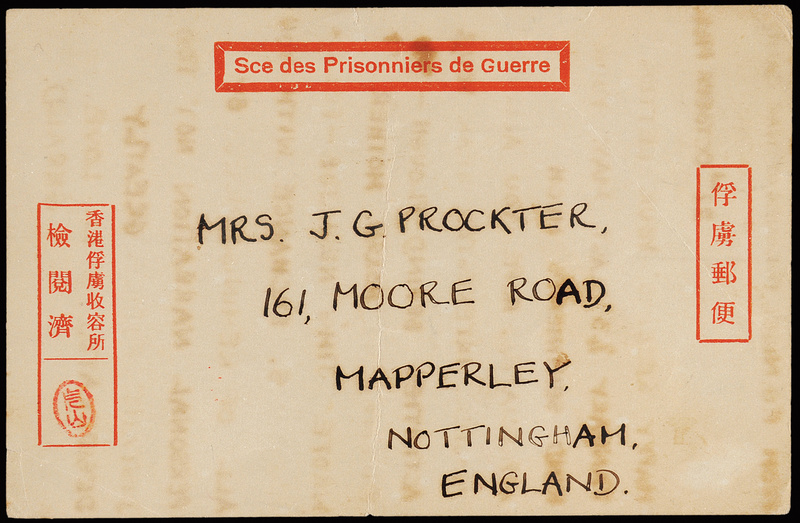 Sce des Prisonniers de Guerre
俘虜郵便
香港俘虜收容所
檢閱濟
MRS. J. G. PROCKTER,
161, MOORE ROAD,
MAPPERLEY,
NOTTINGHAM,
ENGLAND.